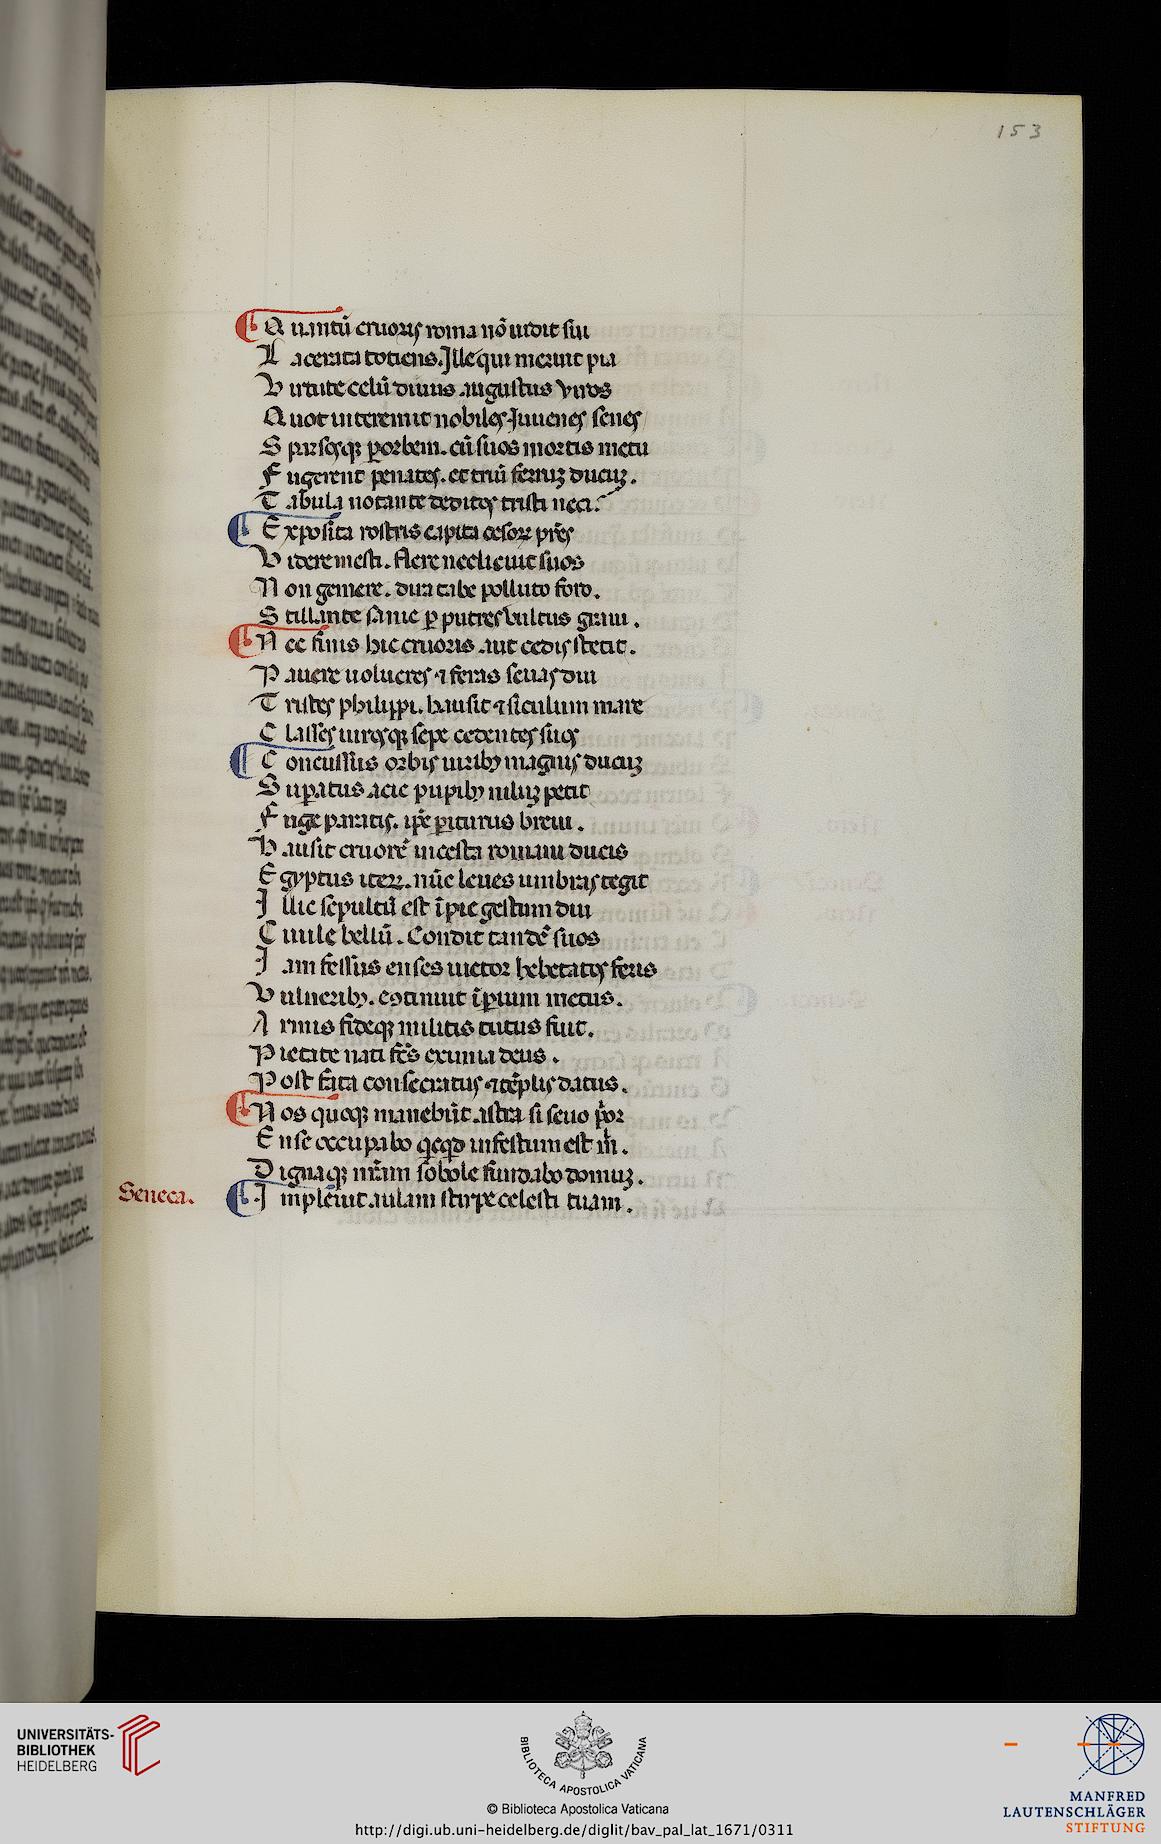 153
Quantū cruoris roma nō uidit sui
Lacerata totiens. Ille qui meruit pia
Virtute celū diuus augustus viros
Quot interemit nobiles Iuuenes senes
Sparsosq; ꝑ orbem. cū suos mortis metu
Fugerent penates. et triū ferruꝫ ducuꝫ.
Tabula notante deditos tristi neci.
Exposita rostris capita cesoꝝ pr̄es
Videre mesti. flere nec licuit suos
Non gemere. dira tabe polluto foro.
Stillante sanie ꝑ putres vultus graui.
Nec finis hic cruoris aut cedis stetit.
Pauere uolucres ⁊ feras seuas diu
Tristes philippi. hausit ⁊ siculum mare
Classes uirosq; sepe cedentes suos
Concussus orbis uirib; magnis ducuꝫ
Suꝑatus acie pupib; niluꝫ petit
Fuge paratis. ip̄e ꝑiturus breui.
Hausit cruorē incesta romani ducis
Egyptus iteꝝ. nūc leues umbras tegit
Illic sepultū est īpie gestum diu
Ciuile bellū. Condit tandē suos
Iam fessus enses uictor hebetatos feris
Vulnerib;. continuit īꝑium metus.
Armis fideq; militis tutus fuit.
Pietate nati fc̄s eximia deus.
Post fata consecratus ⁊ tēplis datus.
Nos quoq; manebūt astra si seuo p̄or
Ense occupabo q̄cqd̄ infestum est m̄.
Dignaq; nr̄am sobole fundabo domuꝫ.
Seneca. Impleuit aulam stirpe celesti tuam.
UNIVERSITÄTS-
BIBLIOTHEK
HEIDELBERG
BIBLIOTECA APOSTOLICA VATICANA
© Biblioteca Apostolica Vaticana
http://digi.ub.uni-heidelberg.de/diglit/bav_pal_lat_1671/0311
MANFRED
LAUTENSCHLÄGER
STIFTUNG